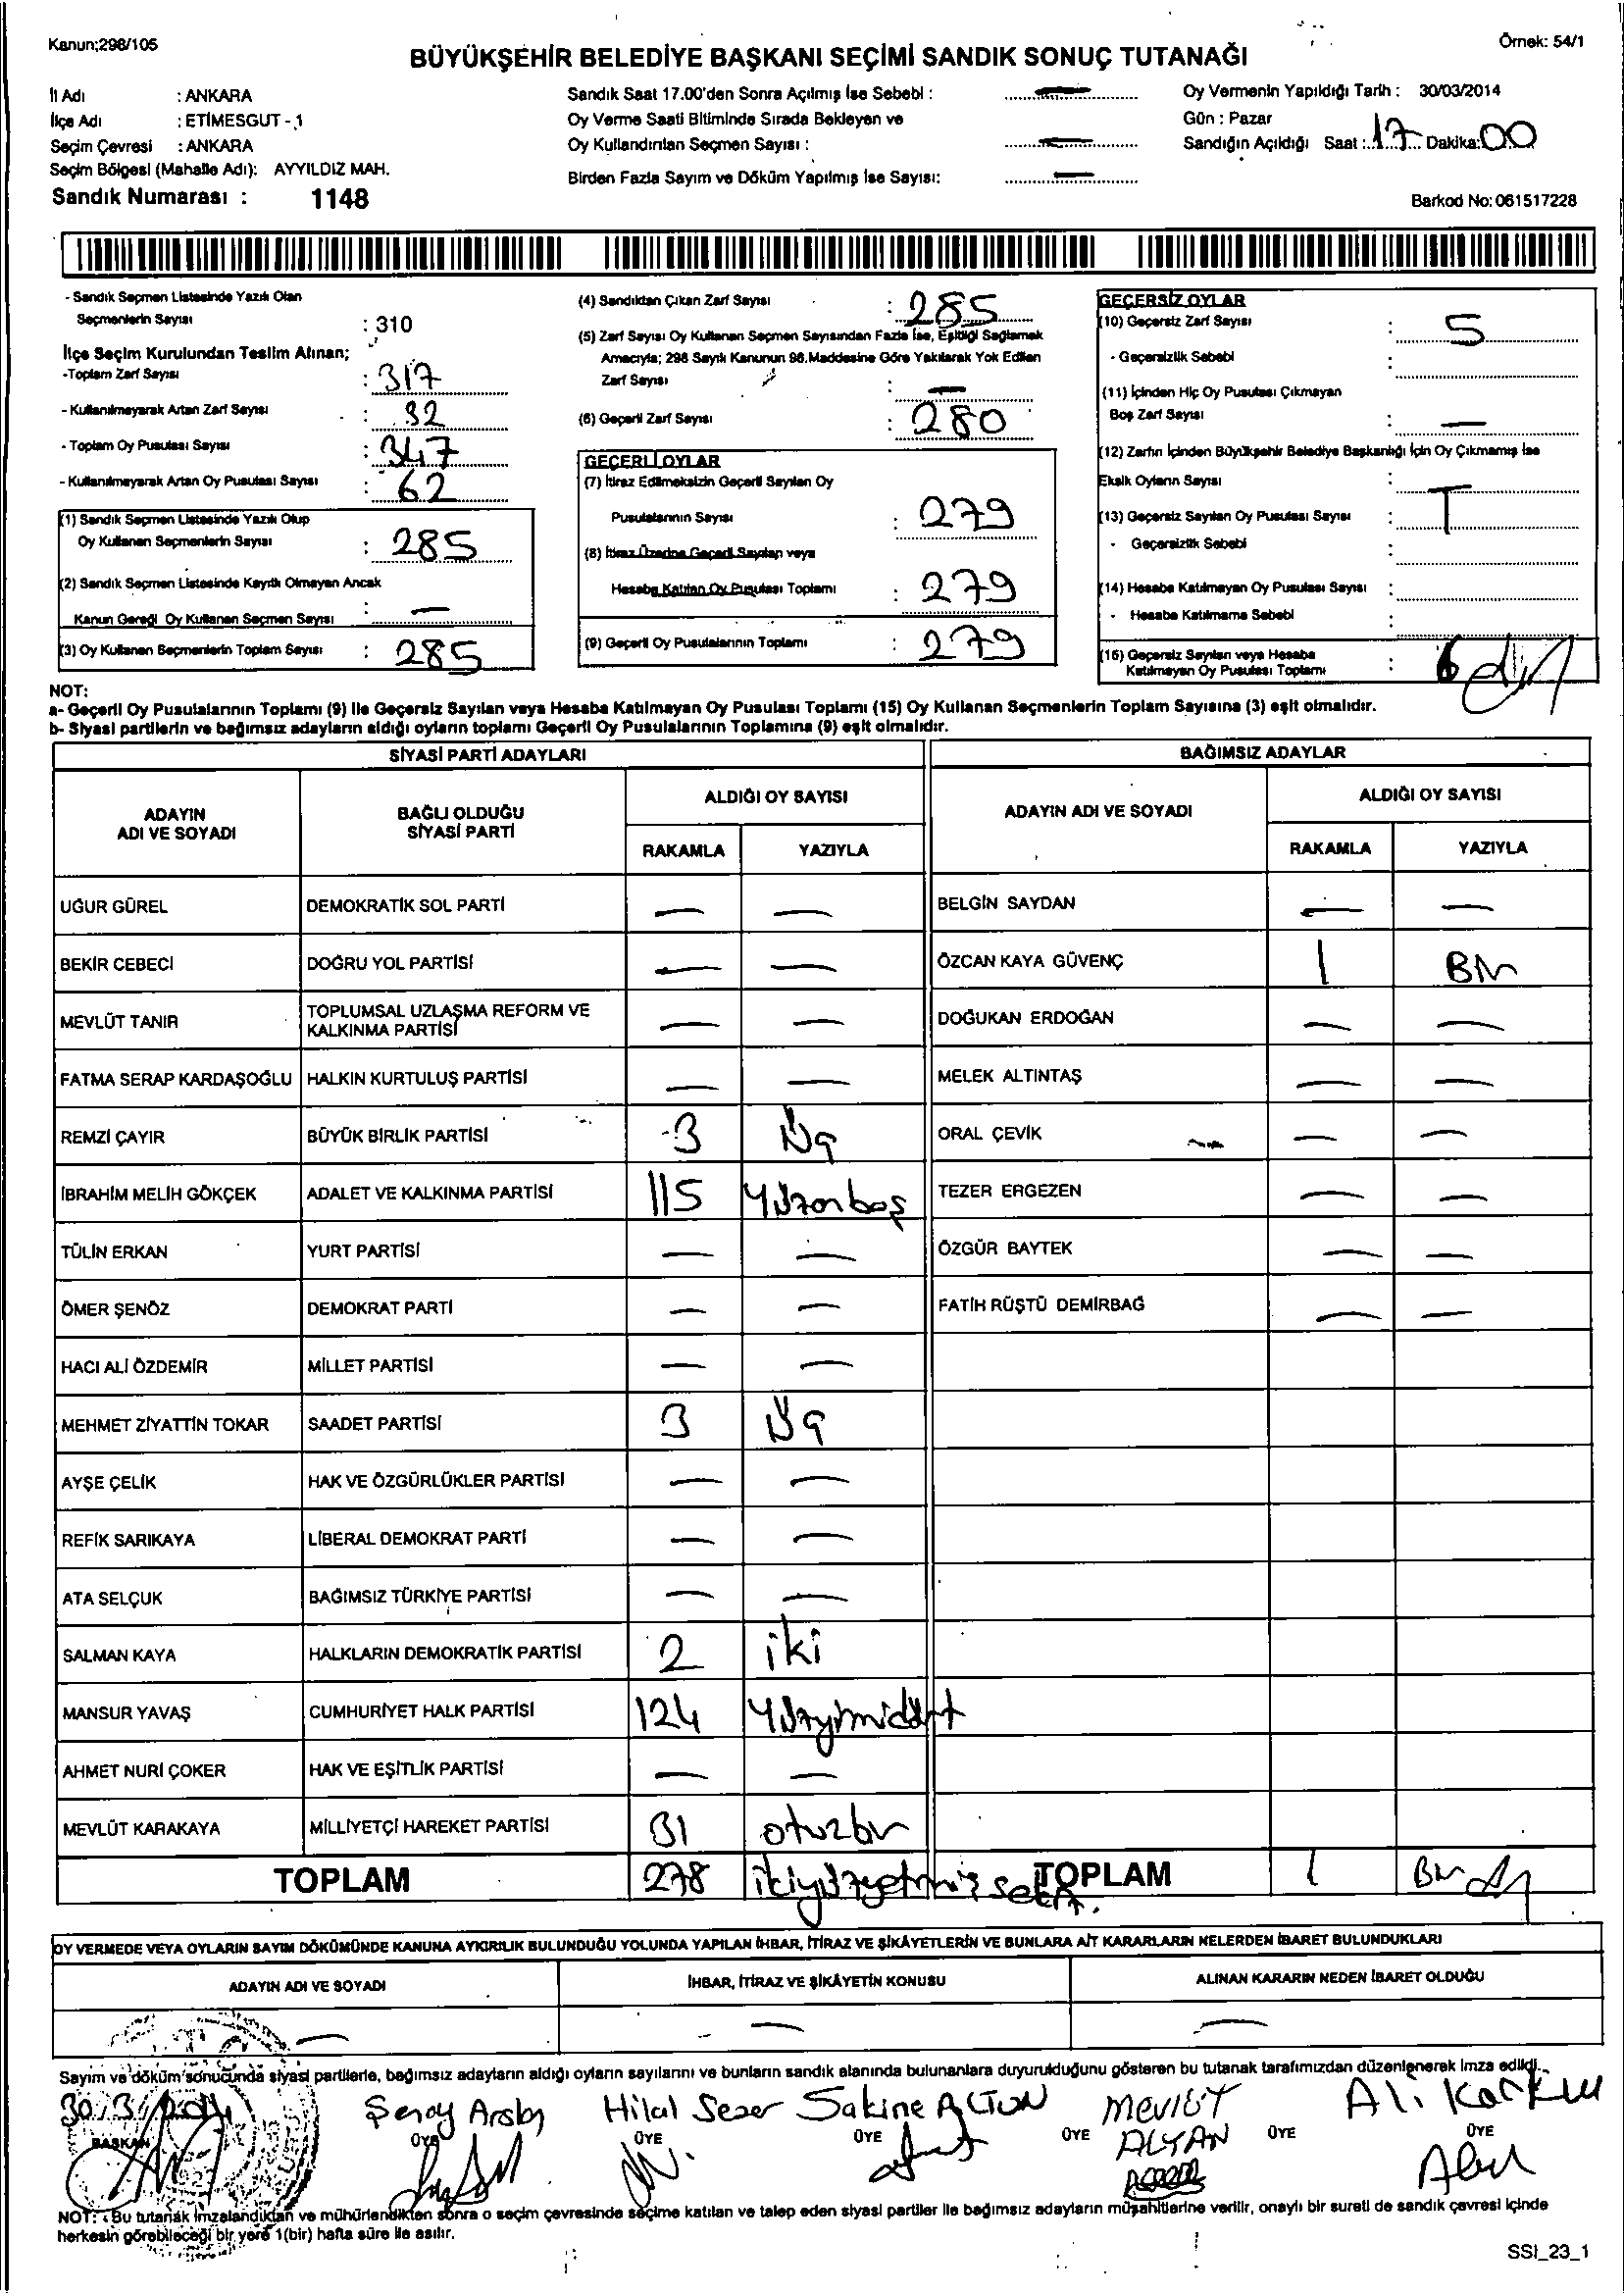 Kanun;298/105
Örnek: 54/1
BÜYÜKŞEHİR BELEDİYE BAŞKANI SEÇİMİ SANDIK SONUÇ TUTANAĞI
İl Adı : ANKARA
İlçe Adı : ETİMESGUT - 1
Seçim Çevresi : ANKARA
Seçim Bölgesi (Mahalle Adı): AYYILDIZ MAH.
Sandık Numarası : 1148
Sandık Saat 17.00'den Sonra Açılmış İse Sebebi : —
Oy Verme Saati Bitiminde Sırada Bekleyen ve
Oy Kullandırılan Seçmen Sayısı : —
Birden Fazla Sayım ve Döküm Yapılmış İse Sayısı: —
Oy Vermenin Yapıldığı Tarih : 30/03/2014
Gün : Pazar
Sandığın Açıldığı Saat : 17 Dakika: 00
Barkod No: 061517228
- Sandık Seçmen Listesinde Yazılı Olan
Seçmenlerin Sayısı : 310
İlçe Seçim Kurulundan Teslim Alınan;
-Toplam Zarf Sayısı : 317
- Kullanılmayarak Artan Zarf Sayısı : 32
- Toplam Oy Pusulası Sayısı : 347
- Kullanılmayarak Artan Oy Pusulası Sayısı : 62
(1) Sandık Seçmen Listesinde Yazılı Olup
Oy Kullanan Seçmenlerin Sayısı : 285
(2) Sandık Seçmen Listesinde Kayıtlı Olmayan Ancak
Kanun Gereği Oy Kullanan Seçmen Sayısı : —
(3) Oy Kullanan Seçmenlerin Toplam Sayısı : 285
(4) Sandıktan Çıkan Zarf Sayısı : 285
(5) Zarf Sayısı Oy Kullanan Seçmen Sayısından Fazla İse, Eşitliği Sağlamak
Amacıyla; 298 Sayılı Kanunun 98.Maddesine Göre Yakılarak Yok Edilen
Zarf Sayısı : —
(6) Geçerli Zarf Sayısı : 280
GEÇERLİ OYLAR
(7) İtiraz Edilmeksizin Geçerli Sayılan Oy
Pusulalarının Sayısı : 279
(8) İtiraz Üzerine Geçerli Sayılan veya
Hesaba Katılan Oy Pusulası Toplamı : 279
(9) Geçerli Oy Pusulalarının Toplamı : 279
GEÇERSİZ OYLAR
(10) Geçersiz Zarf Sayısı : 5
- Geçersizlik Sebebi :
(11) İçinden Hiç Oy Pusulası Çıkmayan
Boş Zarf Sayısı : —
(12) Zarfın İçinden Büyükşehir Belediye Başkanlığı İçin Oy Çıkmamış İse
Eksik Oyların Sayısı :
(13) Geçersiz Sayılan Oy Pusulası Sayısı :
- Geçersizlik Sebebi :
(14) Hesaba Katılmayan Oy Pusulası Sayısı :
- Hesaba Katılmama Sebebi :
(15) Geçersiz Sayılan veya Hesaba
Katılmayan Oy Pusulası Toplamı : 6
NOT:
a- Geçerli Oy Pusulalarının Toplamı (9) ile Geçersiz Sayılan veya Hesaba Katılmayan Oy Pusulası Toplamı (15) Oy Kullanan Seçmenlerin Toplam Sayısına (3) eşit olmalıdır.
b- Siyasi partilerin ve bağımsız adayların aldığı oyların toplamı Geçerli Oy Pusulalarının Toplamına (9) eşit olmalıdır.
SİYASİ PARTİ ADAYLARI
ADAYIN ADI VE SOYADI
BAĞLI OLDUĞU SİYASİ PARTİ
ALDIĞI OY SAYISI
RAKAMLA YAZIYLA
UĞUR GÜREL DEMOKRATİK SOL PARTİ — —
BEKİR CEBECİ DOĞRU YOL PARTİSİ — —
MEVLÜT TANIR TOPLUMSAL UZLAŞMA REFORM VE KALKINMA PARTİSİ — —
FATMA SERAP KARDAŞOĞLU HALKIN KURTULUŞ PARTİSİ — —
REMZİ ÇAYIR BÜYÜK BİRLİK PARTİSİ 3 Üç
İBRAHİM MELİH GÖKÇEK ADALET VE KALKINMA PARTİSİ 115 Yüzonbeş
TÜLİN ERKAN YURT PARTİSİ — —
ÖMER ŞENÖZ DEMOKRAT PARTİ — —
HACI ALİ ÖZDEMİR MİLLET PARTİSİ — —
MEHMET ZİYATTİN TOKAR SAADET PARTİSİ 3 Üç
AYŞE ÇELİK HAK VE ÖZGÜRLÜKLER PARTİSİ — —
REFİK SARIKAYA LİBERAL DEMOKRAT PARTİ — —
ATA SELÇUK BAĞIMSIZ TÜRKİYE PARTİSİ — —
SALMAN KAYA HALKLARIN DEMOKRATİK PARTİSİ 2 iki
MANSUR YAVAŞ CUMHURİYET HALK PARTİSİ 124 Yüzyirmidört
AHMET NURİ ÇOKER HAK VE EŞİTLİK PARTİSİ — —
MEVLÜT KARAKAYA MİLLİYETÇİ HAREKET PARTİSİ 31 otuzbir
TOPLAM 278 ikiyüzyetmiş sekiz
BAĞIMSIZ ADAYLAR
ADAYIN ADI VE SOYADI
ALDIĞI OY SAYISI
RAKAMLA YAZIYLA
BELGİN SAYDAN — —
ÖZCAN KAYA GÜVENÇ 1 Bir
DOĞUKAN ERDOĞAN — —
MELEK ALTINTAŞ — —
ORAL ÇEVİK — —
TEZER ERGEZEN — —
ÖZGÜR BAYTEK — —
FATİH RÜŞTÜ DEMİRBAĞ — —
TOPLAM 1 Bir
OY VERMEDE VEYA OYLARIN SAYIM DÖKÜMÜNDE KANUNA AYKIRILIK BULUNDUĞU YOLUNDA YAPILAN İHBAR, İTİRAZ VE ŞİKÂYETLERİN VE BUNLARA AİT KARARLARIN NELERDEN İBARET BULUNDUKLARI
ADAYIN ADI VE SOYADI
İHBAR, İTİRAZ VE ŞİKÂYETİN KONUSU
ALINAN KARARIN NEDEN İBARET OLDUĞU
— — —
Sayım ve döküm sonucunda siyasi partilerle, bağımsız adayların aldığı oyların sayılarını ve bunların sandık alanında bulunanlara duyurulduğunu gösteren bu tutanak tarafımızdan düzenlenerek imza edildi.
30/3/2014
Şenay Arslan Hilal Sezer Sakine ALTUN MEVLÜT ALYAN Ali
BAŞKAN ÜYE ÜYE ÜYE ÜYE ÜYE ÜYE
NOT: Bu tutanak imzalandıktan ve mühürlendikten sonra o seçim çevresinde seçime katılan ve talep eden siyasi partiler ile bağımsız adayların müşahitlerine verilir, onaylı bir sureti de sandık çevresi içinde
herkesin görebileceği bir yere 1(bir) hafta süre ile asılır.
SSI_23_1